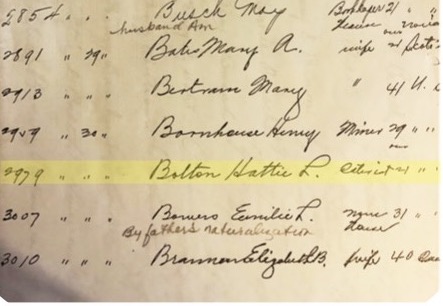 2854 " " " Busch May Bookkeeper 21 " "
husband Am
2891 " 29 " Bates Mary A. wife 21 Scots
2913 " " " Bertram Mary " 41 U.
2959 " 30 " Bornhouse Henry Miner 29 " "
2979 " " " Bolton Hattie L. 21 " "
3007 " " " Bowers Eunilie L. none 31 " "
By fathers naturalization
3010 " " " Brannon Elizabeth B. wife 40